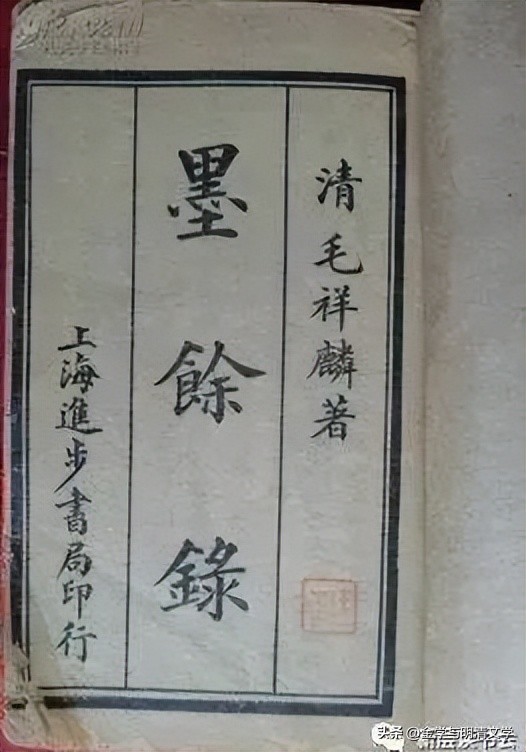 清毛祥麟著
墨餘錄
上海進步書局印行
头条 @金学与明清文学